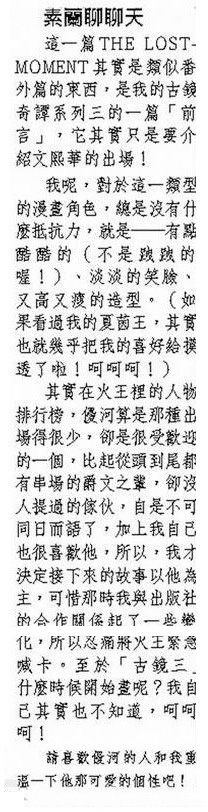 素蘭聊聊天
這一篇THE LOST-
MOMENT其實是類似番
外篇的東西，是我的古鏡
奇譚系列三的一篇「前
言」，它其實只是要介
紹文熙華的出場！
我呢，對於這一類型
的漫畫角色，總是沒有什
麼抵抗力，就是——有點
酷酷的（不是跩跩的
喔！）、淡淡的笑臉、
又高又瘦的造型。（如
果看過我的夏茵王，其實
也就幾乎把我的喜好給摸
透了啦！呵呵呵！）
其實在火王裡的人物
排行榜，優河算是那種出
場得很少，卻是很受歡迎
的一個，比起從頭到尾都
有串場的爵文之輩，卻沒
人提過的傢伙，自是不可
同日而語了，加上我自己
也很喜歡他，所以，我才
決定接下來的故事以他為
主，可惜那時我與出版社
的合作關係起了一些變
化，所以忍痛將火王緊急
喊卡。至於「古鏡三」
什麼時候開始畫呢？我自
己其實也不知道，呵呵
呵！
請喜歡優河的人和我重
溫一下他那可愛的個性吧！